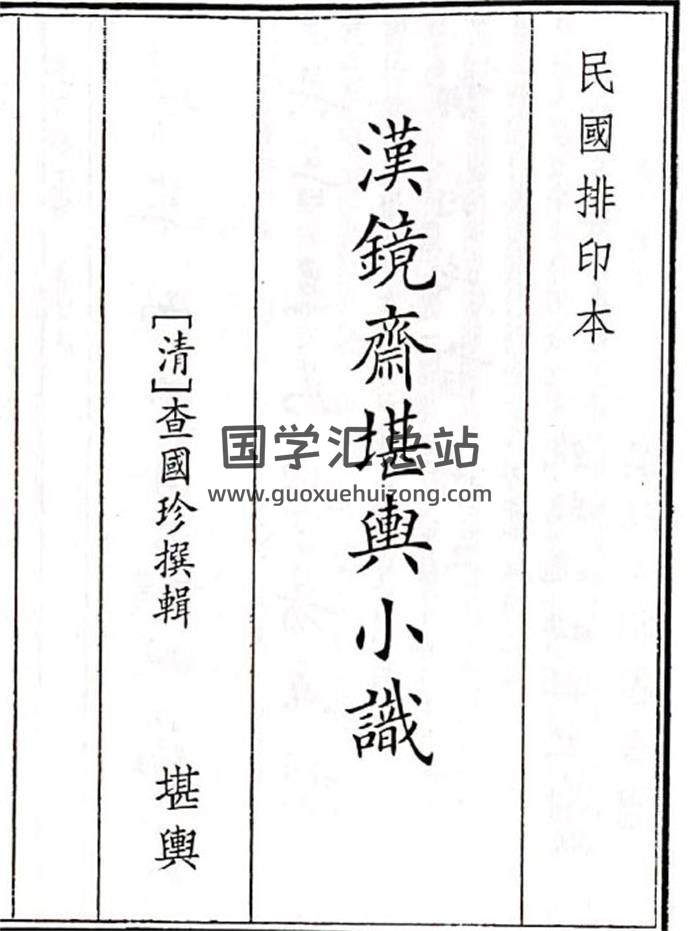 民國排印本
漢鏡齋堪輿小識
[清]查國珍撰輯
堪輿
国学汇总站
www.guoxuehuizong.com